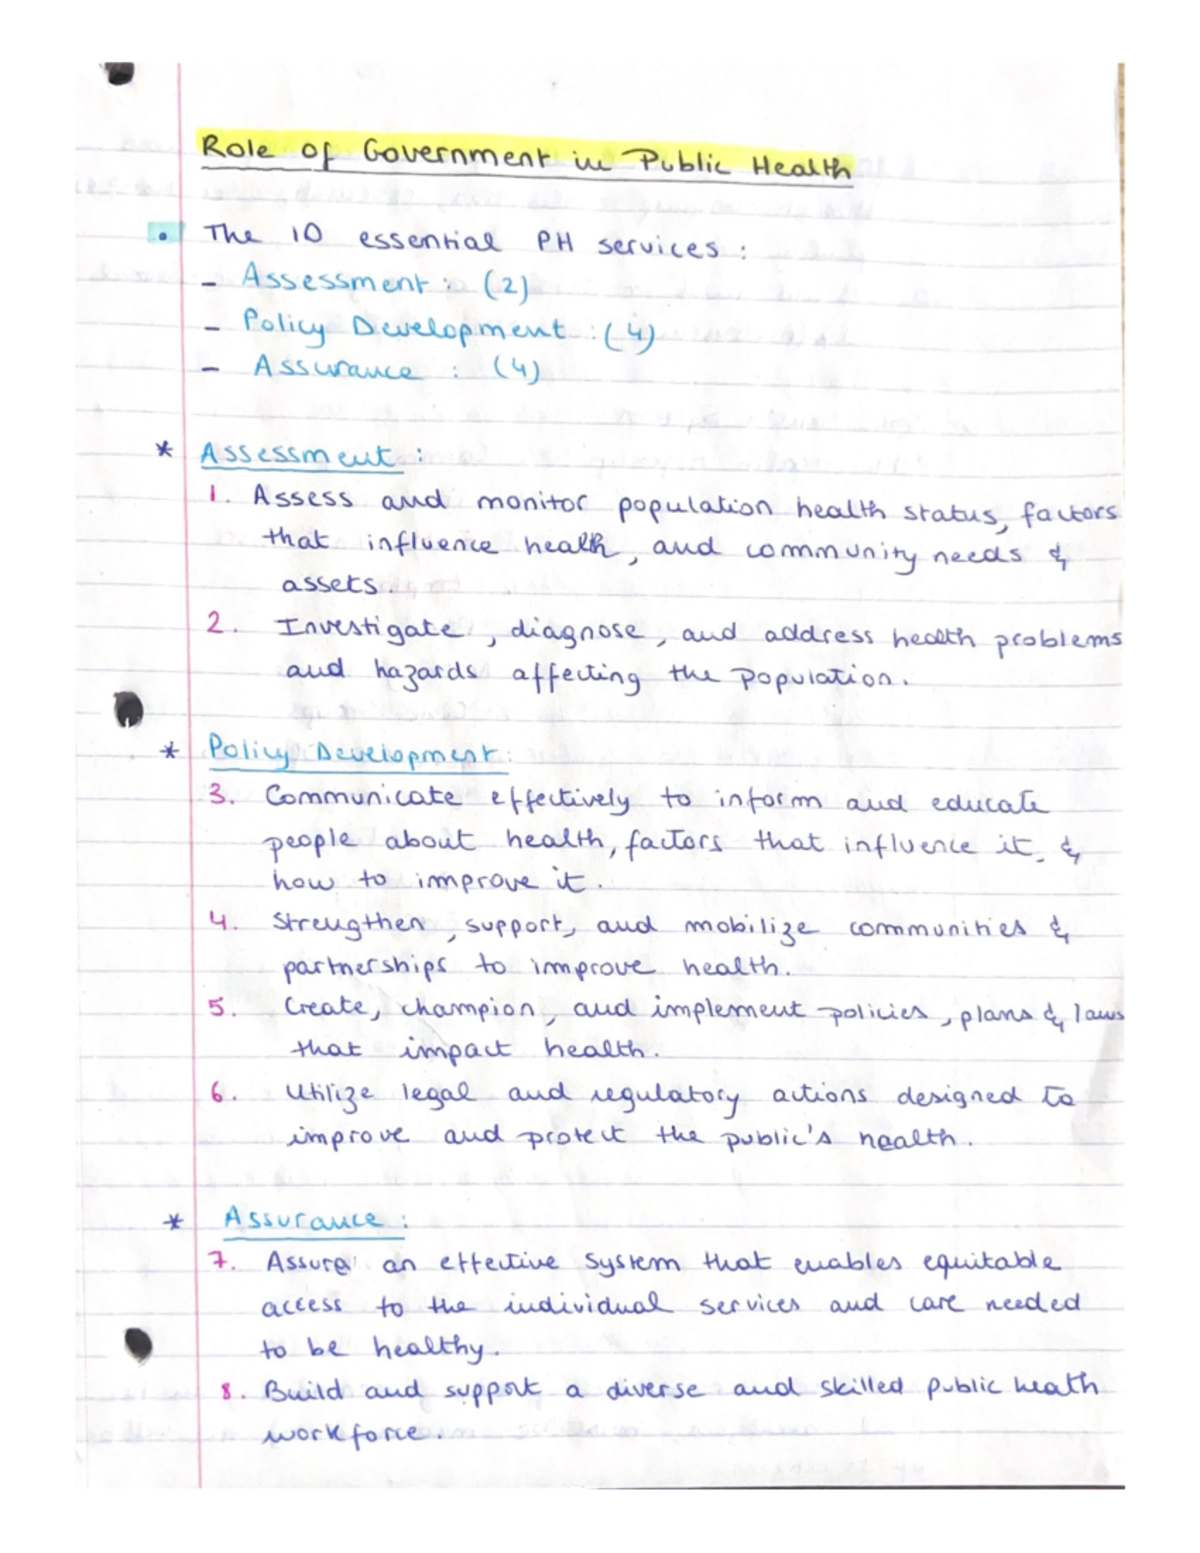 Role of Government in Public Health
• The 10 essential PH services :
- Assessment : (2)
- Policy Development : (4)
- Assurance : (4)
* Assessment :
1. Assess and monitor population health status, factors
that influence health, and community needs &
assets.
2. Investigate, diagnose, and address health problems
and hazards affecting the population.
* Policy Development:
3. Communicate effectively to inform and educate
people about health, factors that influence it, &
how to improve it.
4. Strengthen, support, and mobilize communities &
partnerships to improve health.
5. Create, champion, and implement policies, plans & laws
that impact health.
6. Utilize legal and regulatory actions designed to
improve and protect the public's health.
* Assurance :
7. Assure an effective system that enables equitable
access to the individual services and care needed
to be healthy.
8. Build and support a diverse and skilled public heath
workforce.